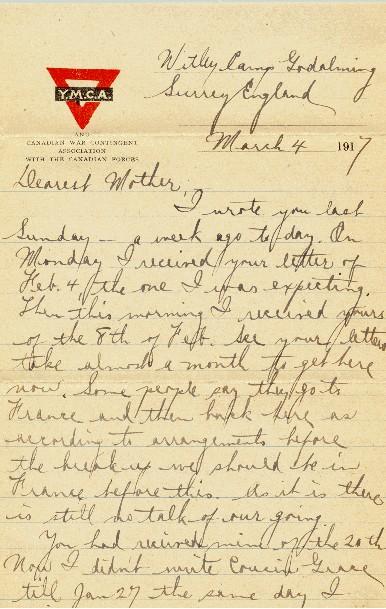 Witley Camp Godalming
Surrey England
Y.M.C.A.
AND
CANADIAN WAR CONTINGENT
ASSOCIATION
WITH THE CANADIAN FORCES
March 4 1917
Dearest Mother,
I wrote you last
Sunday – a week ago to day. On
Monday I received your letter of
Feb. 4, the one I was expecting.
Then this morning I received yours
of the 8th of Feb. See your letters
take almost a month to get here
now. Some people say they go to
France and then back here as
according to arrangements before
the breakup we should be in
France before this. As it is there
is still no talk of our going.
You had received mine of the 20th
Now I didn't write Cousin Grace
till Jan 27 the same day I